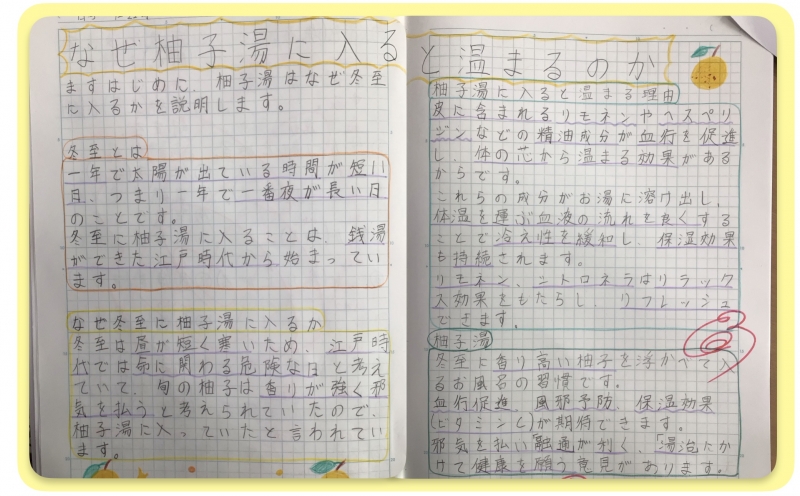 なぜ柚子湯に入ると温まるのか
まずはじめに、柚子湯はなぜ冬至
に入るかを説明します。
冬至とは
一年で太陽が出ている時間が短い
日、つまり一年で一番夜が長い日
のことです。
冬至に柚子湯に入ることは、銭湯
ができた江戸時代から始まってい
ます。
なぜ冬至に柚子湯に入るか
冬至は昼が短く寒いため、江戸時
代では命に関わる危険な日と考え
ていて、旬の柚子は香りが強く邪
気を払うと考えられていたので、
柚子湯に入っていたと言われてい
ます。
柚子湯に入ると温まる理由
皮に含まれるリモネンやヘスペリ
ジンなどの精油成分が血行を促進
し、体の芯から温まる効果がある
からです。
これらの成分がお湯に溶け出し、
体温を運ぶ血液の流れを良くする
ことで冷え性を緩和し、保湿効果
も持続されます。
リモネン、シトロネラはリラック
ス効果をもたらし、リフレッシュ
できます。
柚子湯
冬至に香り高い柚子を浮かべて入
るお風呂の習慣です。
血行促進、風邪予防、保湿効果
(ビタミンC)が期待できます。
邪気を払い融通が利く、「湯治にか
けて健康を願う意見があります。